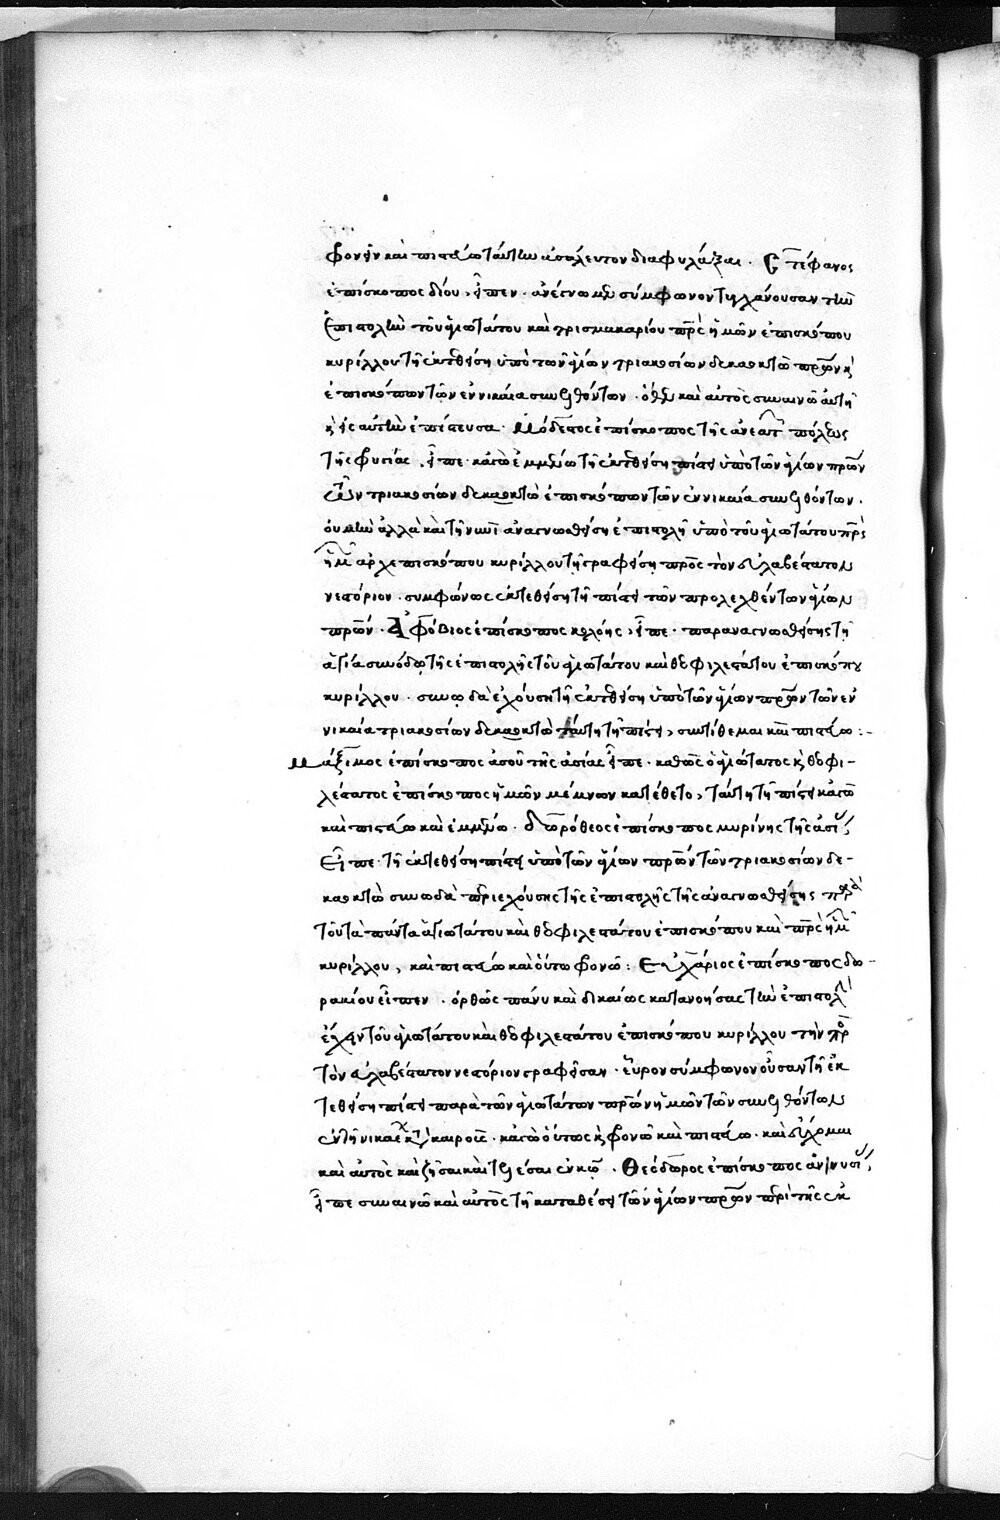 φονεῖν καὶ πιστεύω ταύτην ἀσάλευτον διαφυλάξαι. Στέφανος
ἐπίσκοπος δίου, εἶπεν. ἀνέγνωμεν σύμφωνον τυγχάνουσαν τὴν
ἐπιστολὴν τοῦ ἁγιωτάτου καὶ τρισμακαρίου πρς ἡμῶν ἐπισκόπου
κυρίλλου τῇ ἐκτεθείσῃ ὑπὸ τῶν ἁγίων τριακοσίων δεκαοκτὼ πρων κ
ἐπισκόπων τῶν ἐν νικαία συνελθόντων. ὅθεν καὶ αὐτὸς συναινῶ αὐτῇ
κ εἰς αὐτὴν ἐπίστευσα. Μόδεστος ἐπίσκοπος τῆς ἀνεατ πόλεως
τῆς φυσίας, εἶπε. κἀγὼ ἐμμένω τῇ ἐκτεθείσῃ πίστει ὑπὸ τῶν ἁγίων πρων
τῶν τριακοσίων δεκαοκτὼ ἐπισκόπων τῶν ἐν νικαία συνελθόντων.
οὐ μὴν ἀλλὰ καὶ τῇ νυνὶ ἀναγνωσθείσῃ ἐπιστολῇ ὑπὸ τοῦ ἁγιωτάτου πρς
ἡμ ἀρχιεπισκόπου κυρίλλου τῇ γραφείσῃ πρὸς τὸν εὐλαβέστατον
νεστόριον. συμφώνως ἐκτεθείσῃ τῇ πίστει τῶν προλεχθέντων ἁγίων
πρων. Ἀφόβιος ἐπίσκοπος κολόης, εἶπε. παραναγνωσθείσης τῇ
ἁγία συνόδῳ τῆς ἐπιστολῆς τοῦ ἁγιωτάτου καὶ θεοφιλεστάτου ἐπισκόπου
κυρίλλου. συνῳδὰ ἐχούσῃ τῇ ἐκτεθείσῃ ὑπὸ τῶν ἁγίων πρων τῶν ἐν
νικαία τριακοσίων δεκαοκτὼ ταύτῃ τῇ πίστει, συντίθεμαι καὶ πιστεύω:-
Μάξιμος ἐπίσκοπος ἀσοῦ τῆς ἀσίας εἶπε. καθὼς ὁ ἁγιώτατος κ θεοφι-
λέστατος ἐπίσκοπος ἡμῶν μέμνων κατέθετο, ταύτῃ τῇ πίστει κἀγὼ
καὶ πιστεύω καὶ ἐμμένω. Δωρόθεος ἐπίσκοπος μυρίνης τῆς ἀσί
Εἶπε τῇ ἐκτεθείσῃ πίστει ὑπὸ τῶν ἁγίων πρων τῶν τριακοσίων δε-
καοκτὼ συνῳδὰ περιεχούσης τῆς ἐπιστολῆς τῆς ἀναγνωσθείσης παρὰ
τοῦ τὰ πάντα ἁγιωτάτου καὶ θεοφιλεστάτου ἐπισκόπου καὶ πρς ἡμ
κυρίλλου, καὶ πιστεύω καὶ οὕτω φονῶ: Εὐχάριος ἐπίσκοπος δω-
ρακίου εἶπεν. ὀρθῶς πάνυ καὶ δικαίως κατανοήσας τὴν ἐπιστολ
ἔχειν τοῦ ἁγιωτάτου καὶ θεοφιλεστάτου ἐπισκόπου κυρίλλου τὴν πρ
τὸν εὐλαβέστατον νεστόριον γραφεῖσαν. εὗρον σύμφωνον οὖσαν τῇ ἐκ
τεθείσῃ πίστει παρὰ τῶν ἁγιωτάτων πρων ἡμῶν τῶν συνελθόντων
ἐν τῇ νικαέων κατὰ καιροὺς. κἀγὼ οὕτως κ φονῶ καὶ πιστεύω. καὶ εὔχομαι
καὶ αὐτὸς καὶ ζῆσαι καὶ τελέσαι ἐν κῶ. Θεόδωρος ἐπίσκοπος ἀνινυσί
εἶπε συναινῶ καὶ αὐτὸς τῇ καταθέσει τῶν ἁγίων πρων περὶ τῆς ἐκ